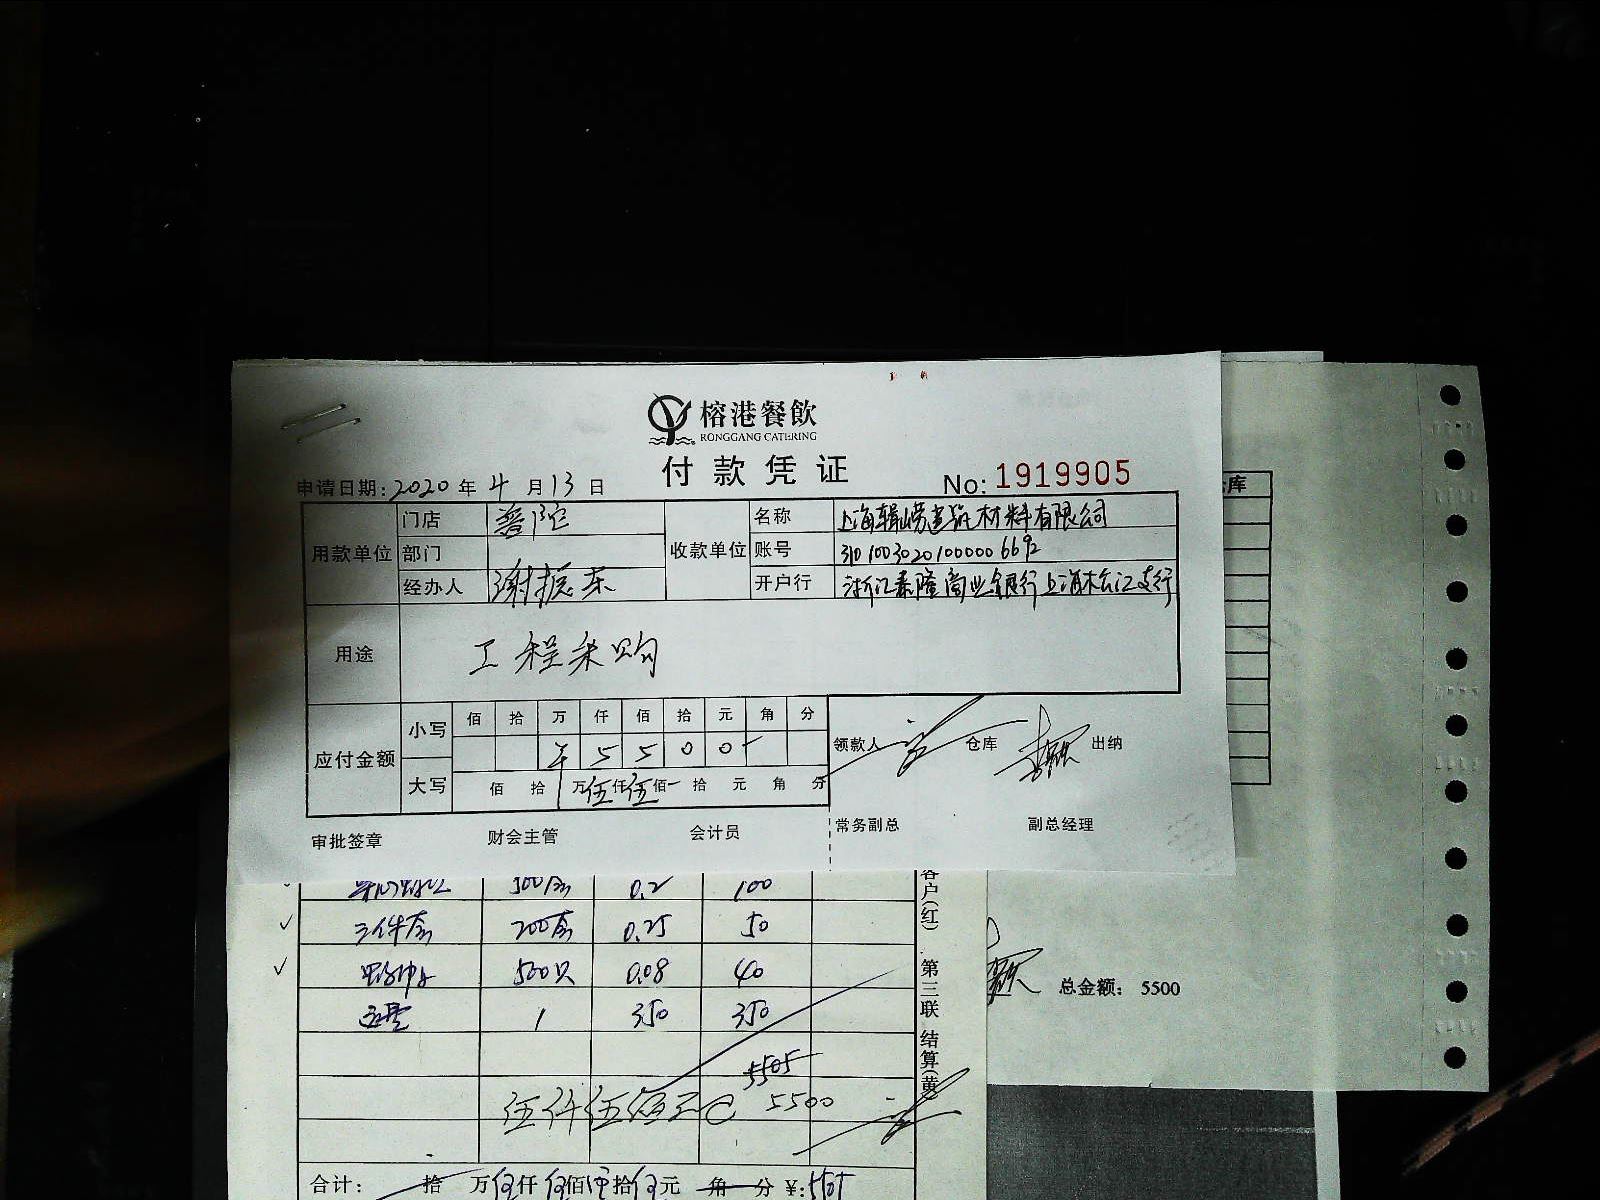 榕港餐飲
RONGGANG CATERING
付款凭证
申请日期: 2020 年 4 月 13 日 No: 1919905
用款单位 门店 普陀 收款单位 名称 上海辑崂建筑材料有限公司
部门 账号 3101003020100000 6692
经办人 谢振东 开户行 浙江泰隆商业银行上海松江支行
用途 工程采购
应付金额 小写 佰 拾 万 仟 佰 拾 元 角 分
¥ 5 5 0 0
大写 佰 拾 万 伍 仟 伍 佰 拾 元 角 分
领款人 仓库 出纳
审批签章 财会主管 会计员 常务副总 副总经理
库
0.2 100
三件套 200套 0.25 50
500只 0.08 40
运费 1 350 350
5505
伍仟伍佰元 5500
合计: 拾 万 伍 仟 伍 佰 拾 伍 元 角 分 ¥: 5505
客户(红) 第三联 结算(黄)
总金额: 5500